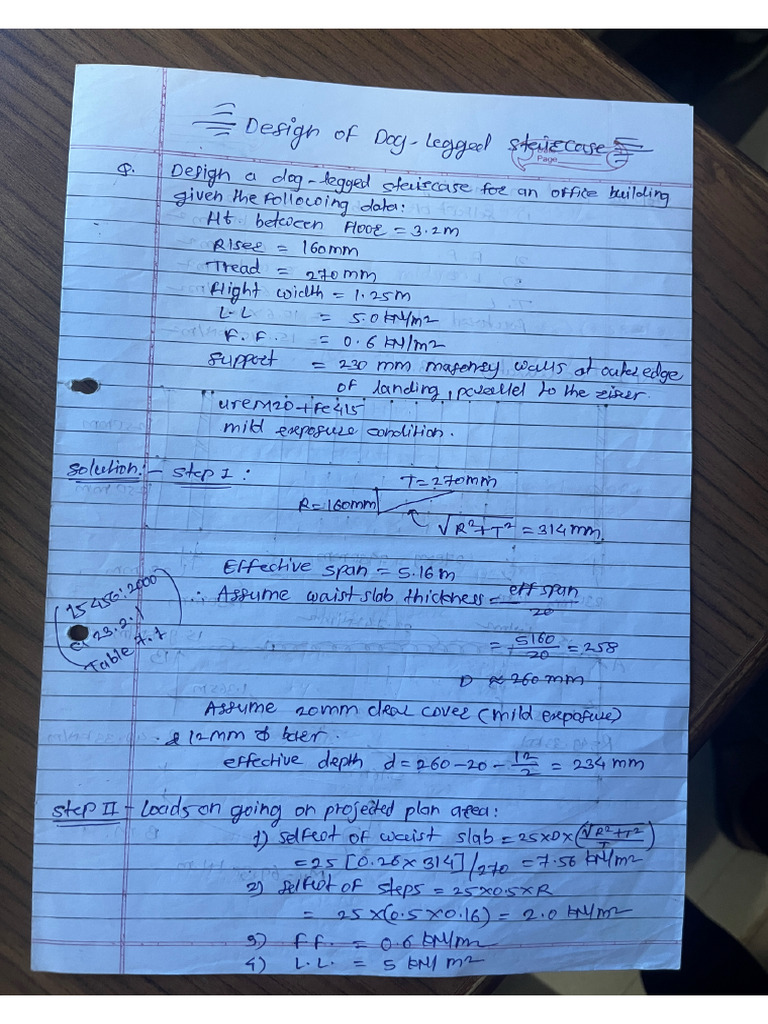 Design of Dog-legged staircase
Page
Q. Design a dog-legged staircase for an office building
given the following data:
Ht. between floor = 3.2m
Riser = 160mm
Tread = 270mm
Flight width = 1.25m
L.L = 5.0 kN/m2
F.F. = 0.6 kN/m2
Support = 230 mm masonry walls at outer edge
of landing, parallel to the riser.
use M20 + Fe415
mild exposure condition.
Solution:- Step I :
T = 270mm
R = 160mm
√R²+T² = 314 mm
Effective span = 5.16m
(IS 456:2000
cl 23.2.1
Table 7.1)
∴ Assume waist slab thickness = eff span/20
= 5160/20 = 258
D ≈ 260 mm
Assume 20mm clear cover (mild exposure)
& 12mm ϕ bar.
effective depth d = 260-20-12/2 = 234 mm
Step II - Loads on going on projected plan area:
1) selfwt of waist slab = 25×D×(√R²+T²/T)
= 25 [0.26 × 314]/270 = 7.56 kN/m2
2) selfwt of steps = 25×0.5×R
= 25×(0.5×0.16) = 2.0 kN/m2
3) F.F. = 0.6 kN/m2
4) L.L. = 5 kN/m2